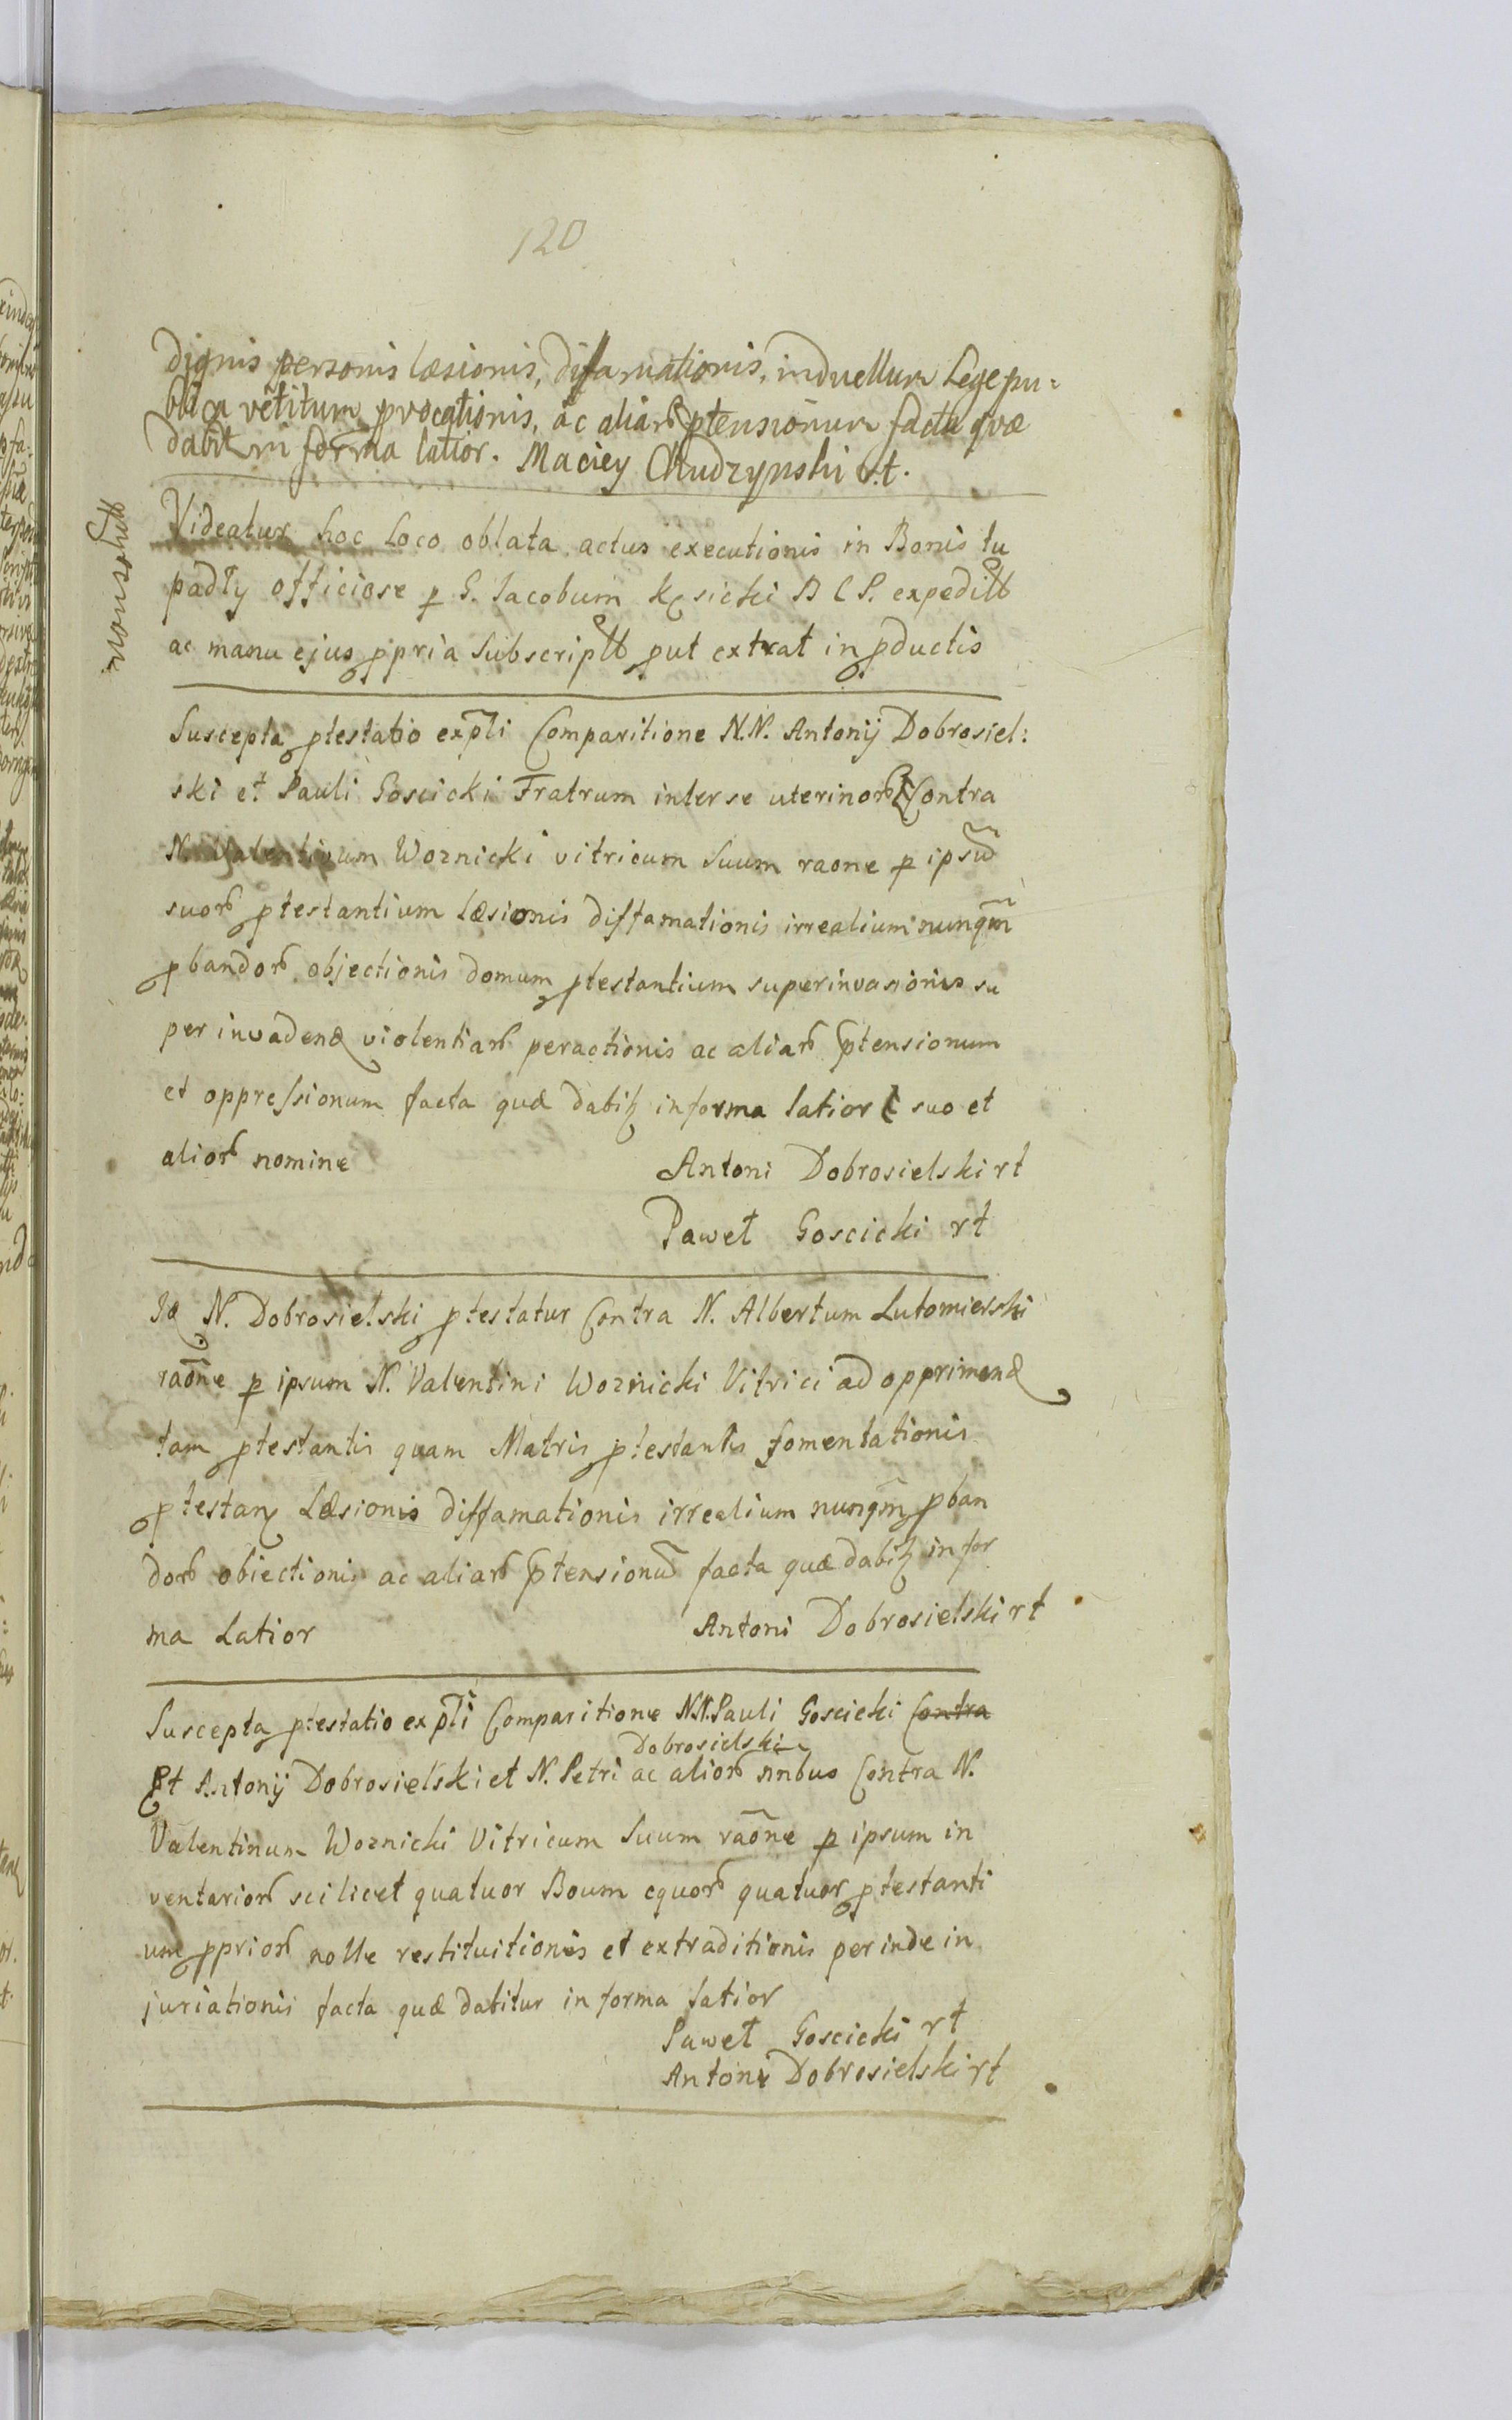 120
dignis personis læsionis, diffamationis, induellum Lege pu=
blica vetitum pvocationis, ac aliar ptensionum facta qvæ
dabit in forma latior. Maciey Chudzynski r.t.
Videatur hoc Loco oblata actus executionis in Bonis tu
padły officiose p G. Jacobum Ksicki expedit
ac manu ejus ppria Subscript put extrat in pductis
Suscepta ptestatio expli Comparitione N.N. Antonij Dobrosiel:
ski et Pauli Goscicki Fratrum inter se uterinor Contra
N. Valentinum Woznicki vitricum Suum raone p ipsu
suor ptestantium Læsionis diffamationis irrealium nunqm
pbandor objectionis domum ptestantium superinvasionis su
per invadend violentiar peractionis ac aliar ptensionum
et oppressionum facta quæ dabit in forma latior suo et
alior nomine Antoni Dobrosielski rt
Paweł Goscicki rt
Id N. Dobrosielski ptestatur Contra N. Albertum Lutomierski
raone p ipsum N. Valentini Woznicki Vitrici ad opprimend
tam ptestantis quam Matris ptestantis fomentationis
ptestan Læsionis diffamationis irrealium nunqm pban
dor obiectionis ac aliar ptensionu facta quæ dabit in for
ma Latior Antoni Dobrosielski rt
Suscepta ptestatio expli Comparitione N.N. Pauli Goscicki Contra
Dobrosielski
Et Antonij Dobrosielski et N. Petri ac alior nnbus Contra N.
Valentinum Woznicki Vitricum Suum raone p ipsum in
ventarior scilicet quatuor Boum equor quatuor ptestanti
um pprior nolle restituitionis et extraditionis perinde in
juriationis facta quæ dabitur in forma latior
Paweł Goscicki rt
Antoni Dobrosielski rt